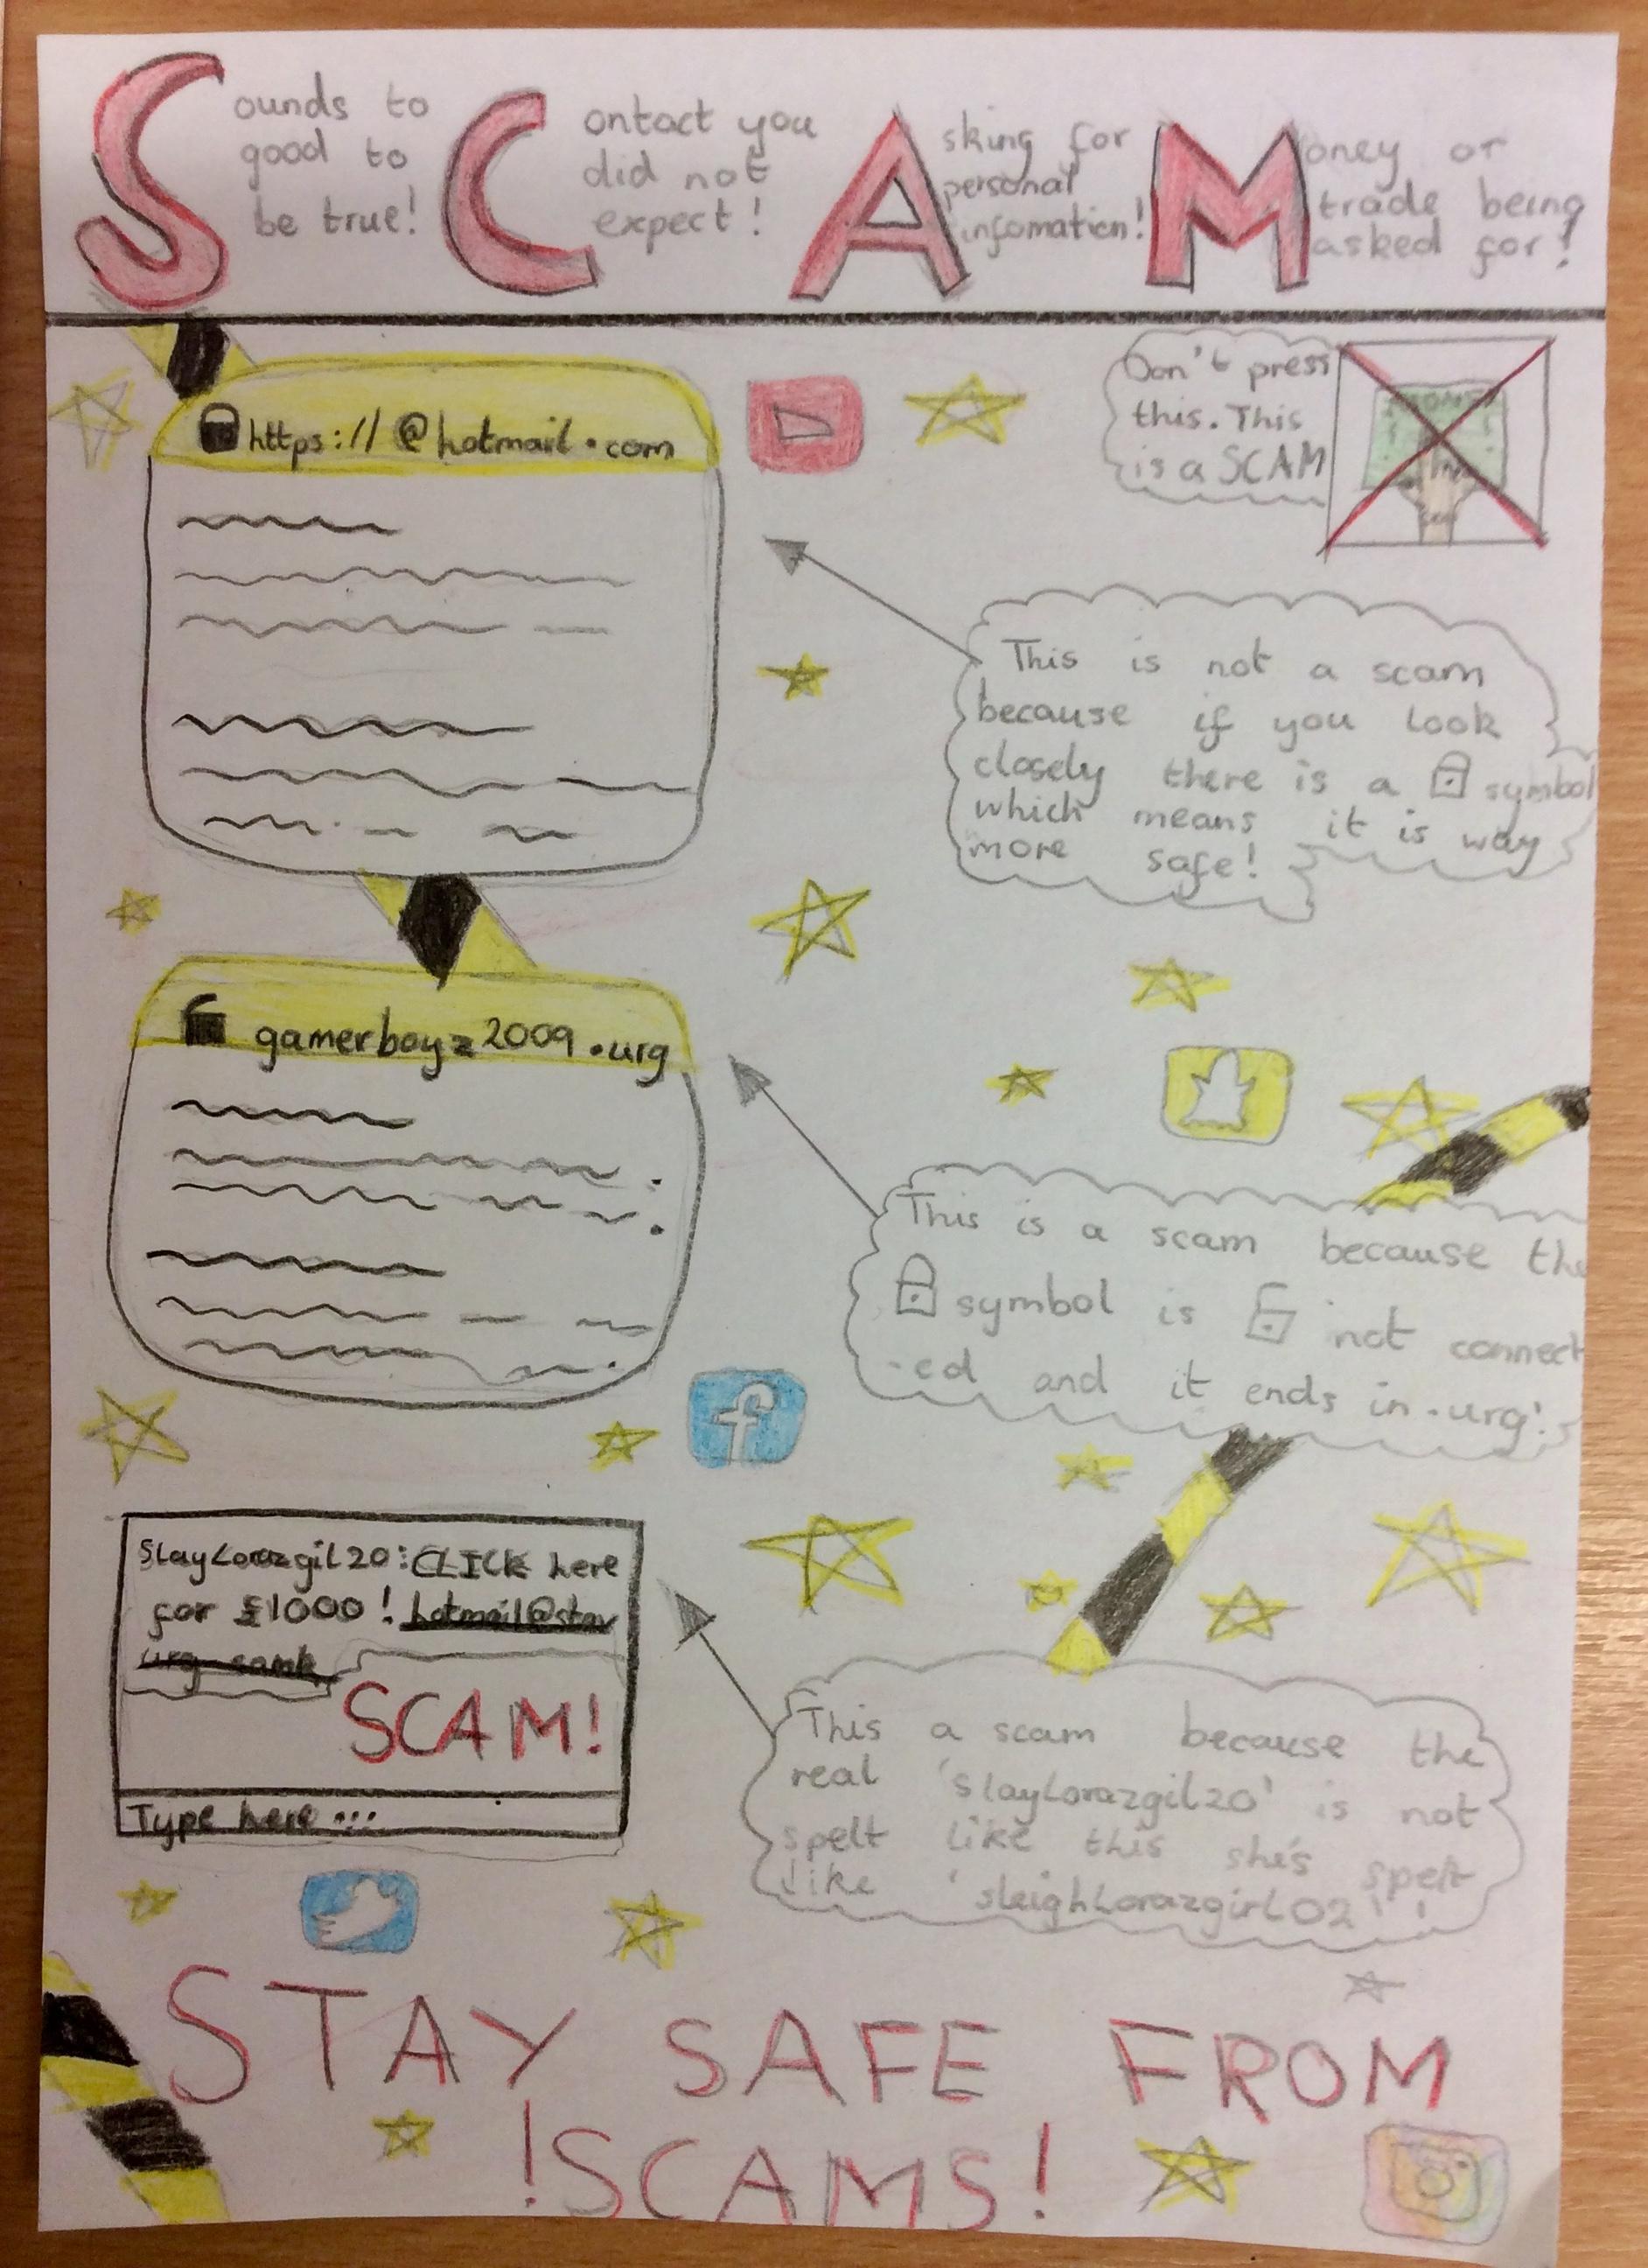 Sounds to
good to
be true!
Contact you
did not
expect!
Asking for
personal
infomation!
Money or
trade being
asked for!
https://@hotmail.com
Don't press
this. This
is a SCAM
MONEY
This is not a scam
because if you look
closely there is a symbol
which means it is way
more safe!
gamerboyz2009.urg
This is a scam because the
symbol is not connect
-ed and it ends in .urg!
SlayLorazgil20: CLICK here
for £1000! hotmail@stav
urg
SCAM!
Type here ...
This a scam because the
real 'SlayLorazgil20' is not
spelt like this she's spelt
like 'sleighLorazgirl02'!
STAY SAFE FROM
!SCAMS!